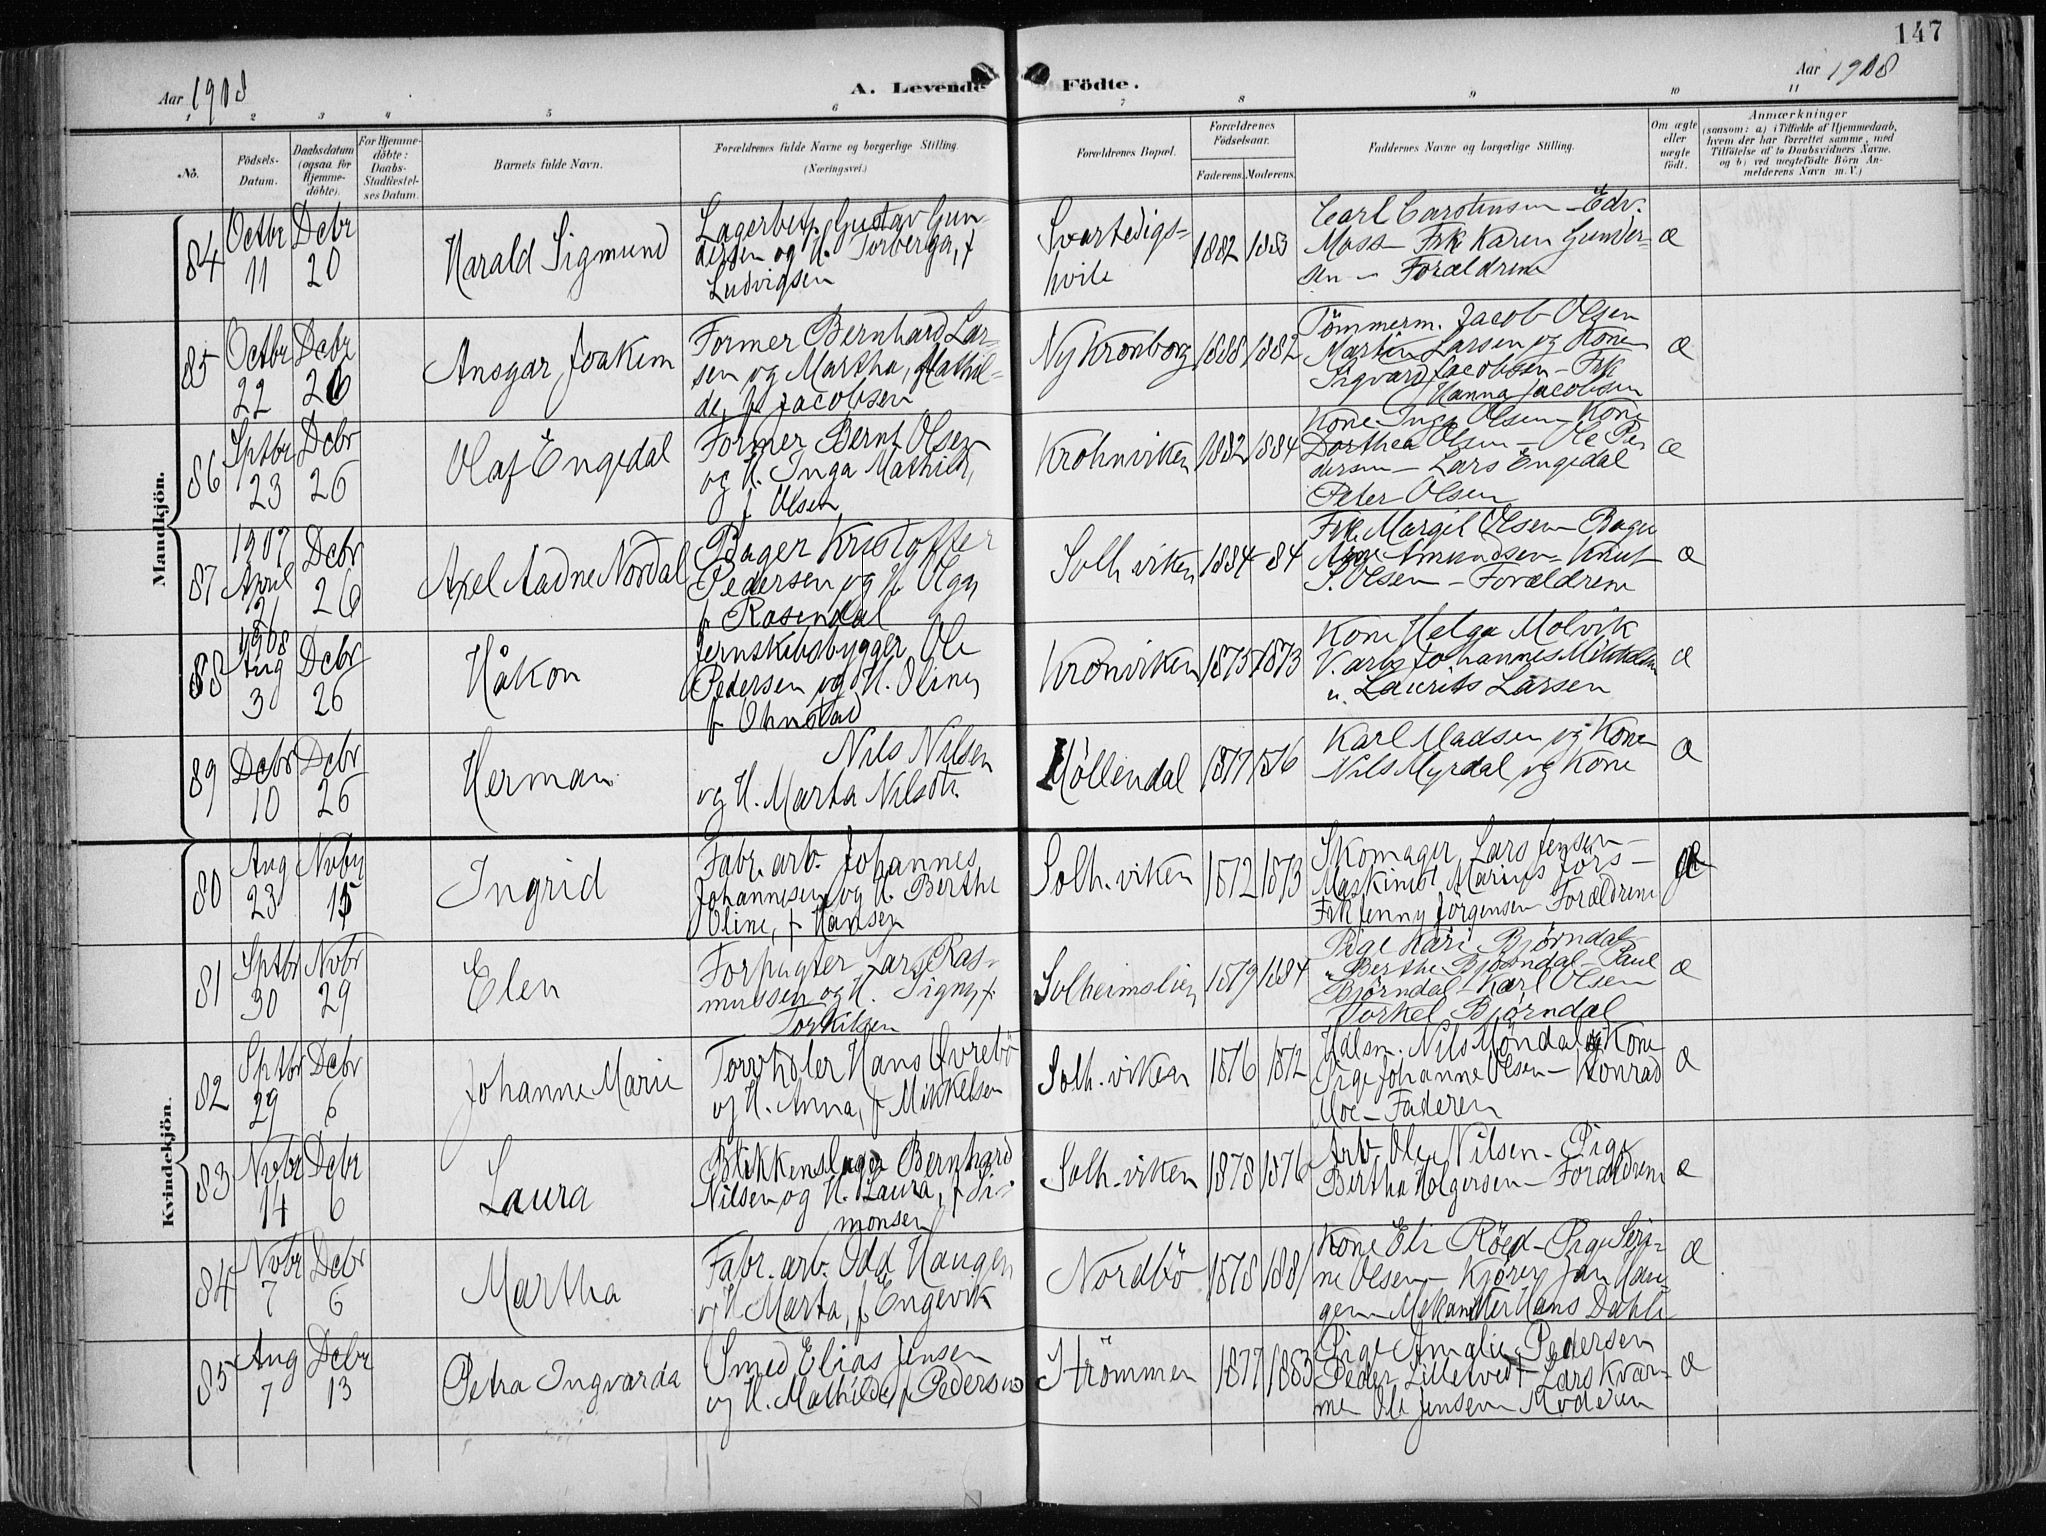 147
Aar 1908
A. Levende Födte.
Aar 1908
1 2 3 4 5 6 7 8 9 10 11
No. Födsels-Datum. Daabsdatum (ogsaa for Hjemme-döbte). For Hjemme-döbte: Daabs-Stadfæstel-ses Datum. Barnets fulde Navn. Forældrenes fulde Navne og borgerlige Stilling. (Næringsvei.) Forældrenes Bopæl. Forældrenes Födselsaar. Faderens. Moderens. Faddernes Navne og borgerlige Stilling. Om ægte eller uægte födt. Anmærkninger
(saasom: a) i Tilfælde af Hjemmedaab,
hvem der har forrettet samme, med
Tilföielse af to Daabsvidners Navne.
og b) ved uægtefödte Börn An-
melderens Navn m. V.)
Mandkjön.
84 Octbr 11 Dcbr 20 Harald Sigmund
Lagerbetj. Gustav Gun-
dersen og H. Torberga, f
Ludvigsen
Svartedigs-
hvile
1882 1883
Carl Carstensen – Edv.
Moss – Frk Karen Gunder-
sen – Forældrene
æ
85 Octbr 22 Dcbr 26 Ansgar Joakim
Former Bernhard Lar-
sen og Martha, Mathil-
de, f. Jacobsen
Ny Kronborg
1888 1882
Tömmerm. Jacob Olsen
Martin Larsen og Kone
Sigvard Jacobsen – Frk
Hanna Jacobsen
æ
86 Sptbr 23 Dcbr 26 Olaf Engedal
Former Bernt Olsen
og H. Inga Mathild,
f Olsen
Krohnviken
1882 1884
Kone Inga Olsen – Kone
Dorthea Olsen – Ole Pe-
dersen – Lars Engedal
Peter Olsen
æ
87 1907 April 21 Dcbr 26 Axel Aadne Nordal
Bager Kristoffer
Pedersen og H. Olga
f Rosendal
Solh viken
1884 84
Frk. Margit Olsen – Bager
Amundsen – Knut
S. Olsen – Forældrene
æ
88 1908 Aug 3 Dcbr 26 Håkon
Jernskibsbygger Ole
Pedersen og H. Oline
f Ohnstad
Kronviken
1875 1873
Kone Helga Molvik
Johannes Mikkelsen
" Laurits Larsen
æ
89 Dcbr 10 Dcbr 26 Herman
Nils Nilsen
og H. Marta Nilsdtr.
Möllendal
1877 1876
Karl Madsen og Kone
Nils Myrdal og Kone
æ
Kvindekjön.
80 Aug 23 Nvbr 15 Ingrid
Fabr. arb. Johannes
Johannesen og H. Berthe
Oline, f Hansen
Solh. viken
1872 1873
Skomager Lars Jensen –
Maskinist Marius Jörs –
Frk Jenny Jörgensen Forældrene
æ
81 Sptbr 30 Nvbr 29 Elen
Forpagter Lars Ras-
mussen og H. Signy f.
Torkilsen
Solheimslien
1879 1884
Pige Kari Björndal
" Berthe Björndal – Paul
Björndal – Karl Olsen
Torkel Björndal
æ
82 Sptbr 29 Dcbr 6 Johanne Marie
Torvhdler Hans Övrebö
og H. Anna, f Mikkelsen
Solh. viken
1876 1872
Nils Möndal og Kone
Pige Johanne Olsen – Konrad
Moe – Faderen
æ
83 Nvbr 14 Dcbr 6 Laura
Blikkenslager Bernhard
Nilsen og H. Laura, f Si-
monsen
Solh. viken
1878 1876
Arb. Ole Nilsen – Pige
Bertha Holgersen – Forældrene
æ
84 Nvbr 7 Dcbr 6 Martha
Fabr. arb. Odd Haugen
og H Marta, f Engevik
Nordbö
1878 1881
Kone Eli Röed – Pige Seri-
ne Olsen – Kjörer Jan Hau-
gen Mekaniker Hans Dahle
æ
85 Aug 7 Dcbr 13 Petra Ingvarda
Smed Elias Jensen
og H. Mathilde, f Pedersen
Strömmen
1877 1883
Pige Amalie Pedersen
Peder Lilletvedt – Lars Kvam-
me Ole Jensen Moderen
æ